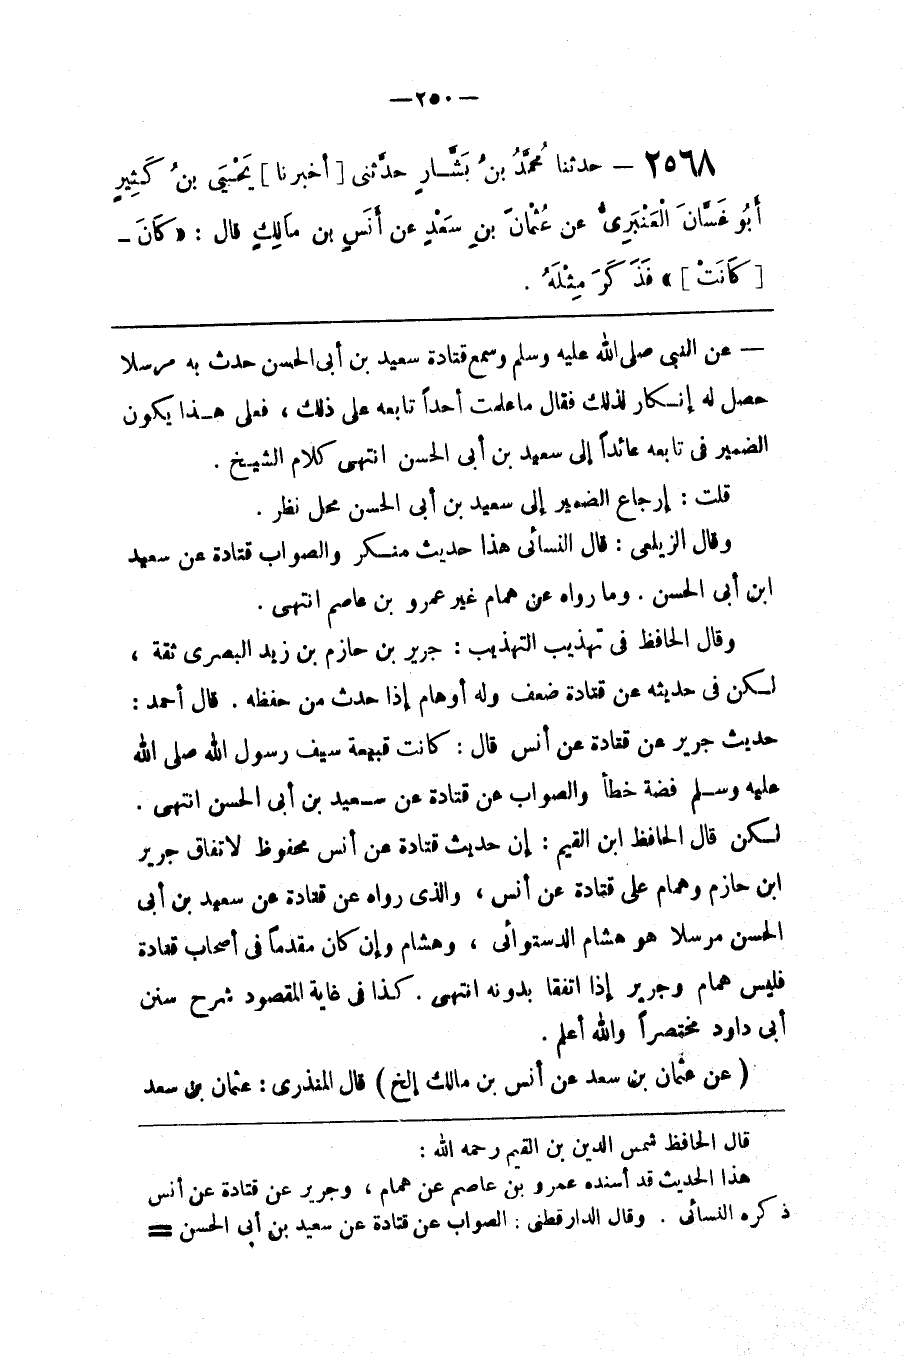 —٢٥٠—
٢٥٦٨ — حدثنا مُحَمَّدُ بنُ بَشَّارٍ حدَّثنى [ أخبرنا ] يَحْيَى بنُ كَثِيرٍ
أَبُو غَسَّانَ الْعَنْبَرِىُّ عن عُثْمَانَ بنِ سَعْدٍ عن أَنَسِ بن مَالِكٍ قال : «كَانَ -
[ كَانَتْ ] » فَذَكَرَ مِثْلَهُ .
— عن النبى صلى الله عليه وسلم وسمع قتادة سعيد بن أبى الحسن حدث به مرسلا
حصل له إنكار لذلك فقال ما علمت أحداً تابعه على ذلك ، فعلى هذا يكون
الضمير فى تابعه عائداً إلى سعيد بن أبى الحسن انتهى كلام الشيخ .
قلت : إرجاع الضمير إلى سعيد بن أبى الحسن محل نظر .
وقال الزيلعى : قال النسائى هذا حديث منكر والصواب قتادة عن سعيد
ابن أبى الحسن . وما رواه عن همام غير عمرو بن عاصم انتهى .
وقال الحافظ فى تهذيب التهذيب : جرير بن حازم بن زيد البصرى ثقة ،
لكن فى حديثه عن قتادة ضعف وله أوهام إذا حدث من حفظه . قال أحمد :
حديث جرير عن قتادة عن أنس قال : كانت قبيعة سيف رسول الله صلى الله
عليه وسلم فضة خطأ والصواب عن قتادة عن سعيد بن أبى الحسن انتهى .
لكن قال الحافظ ابن القيم : إن حديث قتادة عن أنس محفوظ لاتفاق جرير
ابن حازم وهمام على قتادة عن أنس ، والذى رواه عن قتادة عن سعيد بن أبى
الحسن مرسلا هو هشام الدستوائى ، وهشام وإن كان مقدماً فى أصحاب قتادة
فليس همام وجرير إذا اتفقا بدونه انتهى . كذا فى غاية المقصود شرح سنن
أبى داود مختصراً والله أعلم .
( عن عثمان بن سعد عن أنس بن مالك إلخ ) قال المنذرى : عثمان بن سعد
قال الحافظ شمس الدين بن القيم رحمه الله :
هذا الحديث قد أسنده عمرو بن عاصم عن همام ، وجرير عن قتادة عن أنس
ذكره النسائى . وقال الدارقطنى : الصواب عن قتادة عن سعيد بن أبى الحسن =